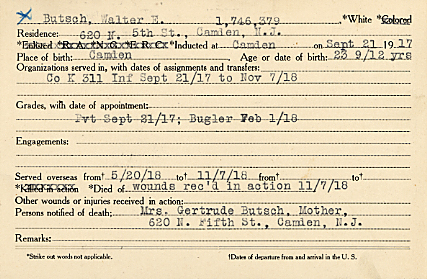 x Butsch, Walter E. 1,746,379 *White *Colored
Residence: 620 N. 5th St., Camden, N.J.
*Enlisted *R A *N G *E R C *Inducted at Camden on Sept 21 1917
Place of birth: Camden Age or date of birth: 23 9/12 yrs
Organizations served in, with dates of assignments and transfers:
Co K 311 Inf Sept 21/17 to Nov 7/18
Grades, with date of appointment:
Pvt Sept 21/17; Bugler Feb 1/18
Engagements:
Served overseas from† 5/20/18 to† 11/7/18 from† to†
*Killed in action *Died of wounds rec'd in action 11/7/18
Other wounds or injuries received in action:
Persons notified of death: Mrs. Gertrude Butsch, Mother,
620 N. Fifth St., Camden, N.J.
Remarks:
*Strike out words not applicable. †Dates of departure from and arrival in the U. S.